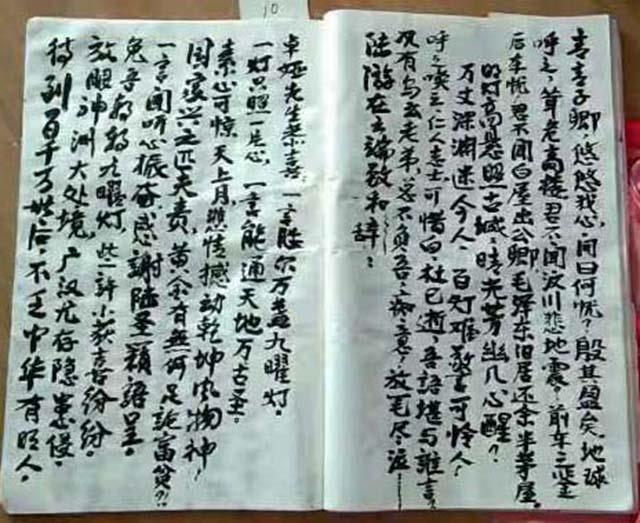 10
青青子卿，悠悠我心，问曰何忧？殷其盈矣。地球
呼之，老高楼君不闻汶川悲地震？前车之鉴
后车忧，君不闻白屋出公卿毛泽东旧居还余半茅屋。
明灯高悬照古城，晴光芳幽几心醒？
万丈深渊迷今人，百灯难警可怜人！
呼之唤之仁人志士可惜白、杜已逝，吾语堪与谁言？
没有乌玄老弟，岂不负吾痴意？放毛尽泣
陆游在云端敬和辞：
卓娅先生恭喜：一言胜尔万盏九曜灯。
一灯只照一片心，一言能通天地万古圣。
素心可惊天上月，悲情撼动乾坤风物神！
国家兴亡匹夫责，黄金有无何足论富贫？！
一言闻听心振奋，感谢陆圣一颗语呈。
九曜灯，些许小获喜纷纷。
放眼神洲大处境，广汉尤存隐患侵。
待到百千万世后，不乏中华有明人。